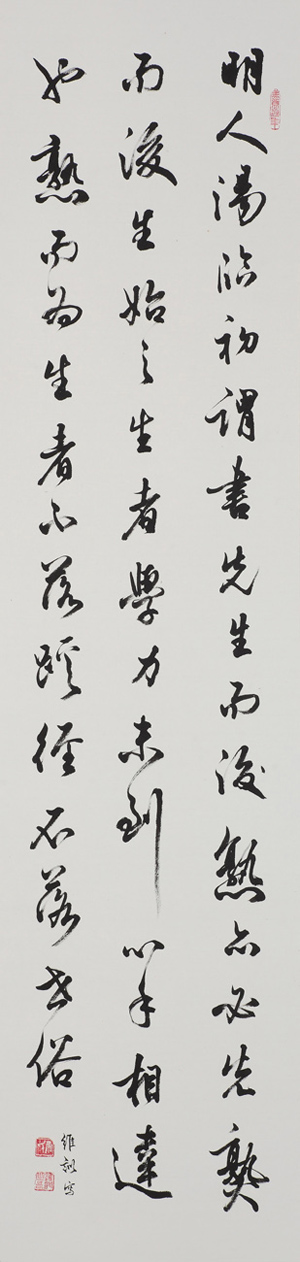 明人湯臨初謂書先生而後熟亦必先熟
而後生始之生者學力未到心手相違
也熟而為生者不落蹊徑不落世俗